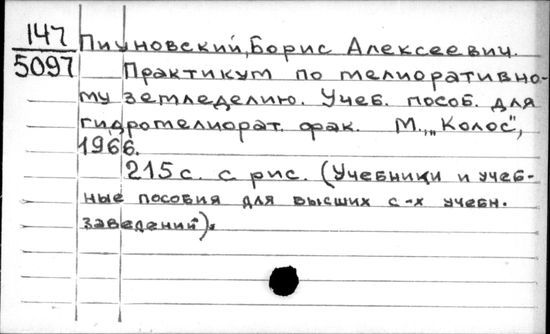 147
5097
Пиуновский, Борис Алексеевич.
Практикум по мелиоративно-
му земледелию. Учеб. пособ. для
гидромелиорат. фак. М., „Колос",
1966.
215 с. с рис. (Учебники и учеб-
ные пособия для высших с-х учебн.
заведений).